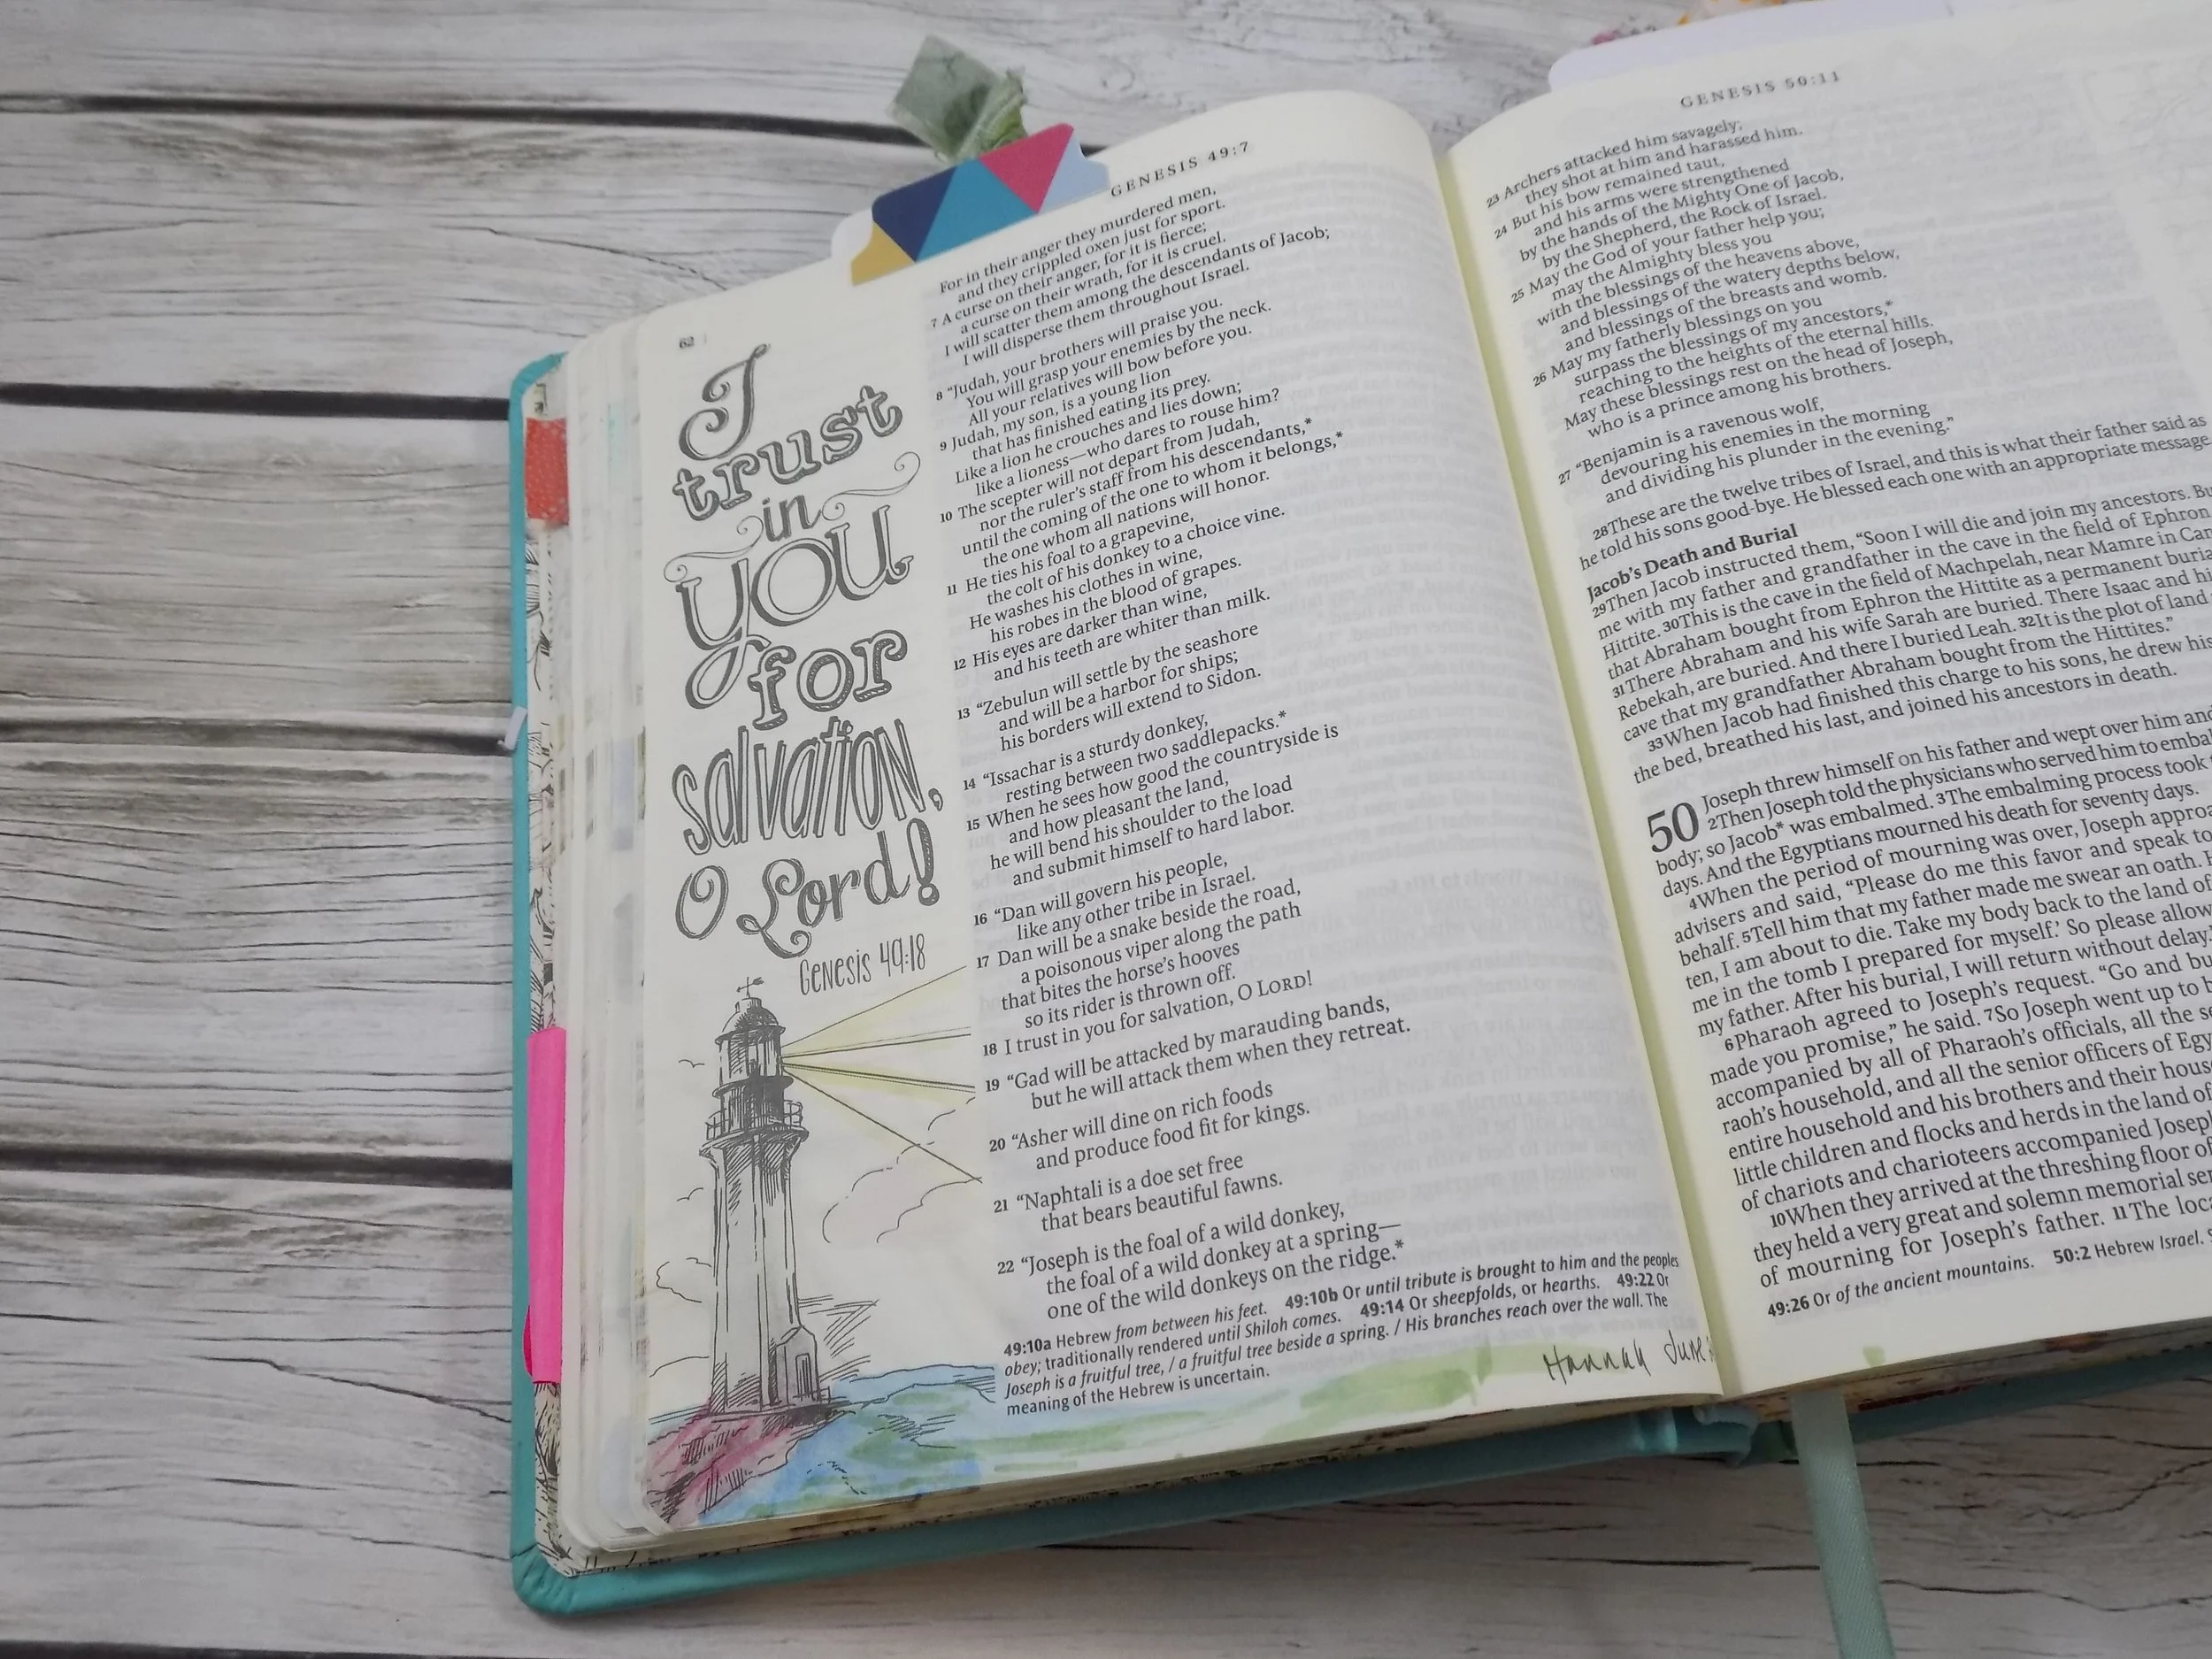 62
I
trust
in
you
for
salvation,
O Lord!
Genesis 49:18
GENESIS 49:7
For in their anger they murdered men,
and they crippled oxen just for sport.
7 A curse on their anger, for it is fierce;
a curse on their wrath, for it is cruel.
I will scatter them among the descendants of Jacob;
I will disperse them throughout Israel.
8 “Judah, your brothers will praise you.
You will grasp your enemies by the neck.
All your relatives will bow before you.
9 Judah, my son, is a young lion
that has finished eating its prey.
Like a lion he crouches and lies down;
like a lioness—who dares to rouse him?
10 The scepter will not depart from Judah,
nor the ruler’s staff from his descendants,*
until the coming of the one to whom it belongs,*
the one whom all nations will honor.
11 He ties his foal to a grapevine,
the colt of his donkey to a choice vine.
He washes his clothes in wine,
his robes in the blood of grapes.
12 His eyes are darker than wine,
and his teeth are whiter than milk.
13 “Zebulun will settle by the seashore
and will be a harbor for ships;
his borders will extend to Sidon.
14 “Issachar is a sturdy donkey,
resting between two saddlepacks.*
15 When he sees how good the countryside is
and how pleasant the land,
he will bend his shoulder to the load
and submit himself to hard labor.
16 “Dan will govern his people,
like any other tribe in Israel.
17 Dan will be a snake beside the road,
a poisonous viper along the path
that bites the horse’s hooves
so its rider is thrown off.
18 I trust in you for salvation, O LORD!
19 “Gad will be attacked by marauding bands,
but he will attack them when they retreat.
20 “Asher will dine on rich foods
and produce food fit for kings.
21 “Naphtali is a doe set free
that bears beautiful fawns.
22 “Joseph is the foal of a wild donkey,
the foal of a wild donkey at a spring—
one of the wild donkeys on the ridge.*
49:10a Hebrew from between his feet. 49:10b Or until tribute is brought to him and the peoples
obey; traditionally rendered until Shiloh comes. 49:14 Or sheepfolds, or hearths. 49:22 Or
Joseph is a fruitful tree, / a fruitful tree beside a spring. / His branches reach over the wall. The
meaning of the Hebrew is uncertain.
Hannah June
GENESIS 50:11
23 Archers attacked him savagely;
they shot at him and harassed him.
24 But his bow remained taut,
and his arms were strengthened
by the hands of the Mighty One of Jacob,
by the Shepherd, the Rock of Israel.
25 May the God of your father help you;
may the Almighty bless you
with the blessings of the heavens above,
and blessings of the watery depths below,
and blessings of the breasts and womb.
26 May my fatherly blessings on you
surpass the blessings of my ancestors,*
reaching to the heights of the eternal hills.
May these blessings rest on the head of Joseph,
who is a prince among his brothers.
27 “Benjamin is a ravenous wolf,
devouring his enemies in the morning
and dividing his plunder in the evening.”
28These are the twelve tribes of Israel, and this is what their father said as
he told his sons good-bye. He blessed each one with an appropriate message
Jacob’s Death and Burial
29Then Jacob instructed them, “Soon I will die and join my ancestors.
me with my father and grandfather in the cave in the field of Ephron
Hittite. 30This is the cave in the field of Machpelah, near Mamre in
that Abraham bought from Ephron the Hittite as a permanent
31There Abraham and his wife Sarah are buried. There Isaac and
Rebekah, are buried. And there I buried Leah. 32It is the plot of land
cave that my grandfather Abraham bought from the Hittites.”
33When Jacob had finished this charge to his sons, he drew his
the bed, breathed his last, and joined his ancestors in death.
50 Joseph threw himself on his father and wept over him and
2Then Joseph told the physicians who served him to
body; so Jacob* was embalmed. 3The embalming process took
days. And the Egyptians mourned his death for seventy days.
4When the period of mourning was over, Joseph
advisers and said, “Please do me this favor and speak to
behalf. 5Tell him that my father made me swear an oath.
ten, I am about to die. Take my body back to the land of
me in the tomb I prepared for myself.’ So please allow
my father. After his burial, I will return without delay.
6Pharaoh agreed to Joseph’s request. “Go and
made you promise,” he said. 7So Joseph went up to
accompanied by all of Pharaoh’s officials, all the
raoh’s household, and all the senior officers of
entire household and his brothers and their
little children and flocks and herds in the land of
of chariots and charioteers accompanied
10When they arrived at the threshing floor of
they held a very great and solemn memorial
of mourning for Joseph’s father. 11The
49:26 Or of the ancient mountains. 50:2 Hebrew Israel.